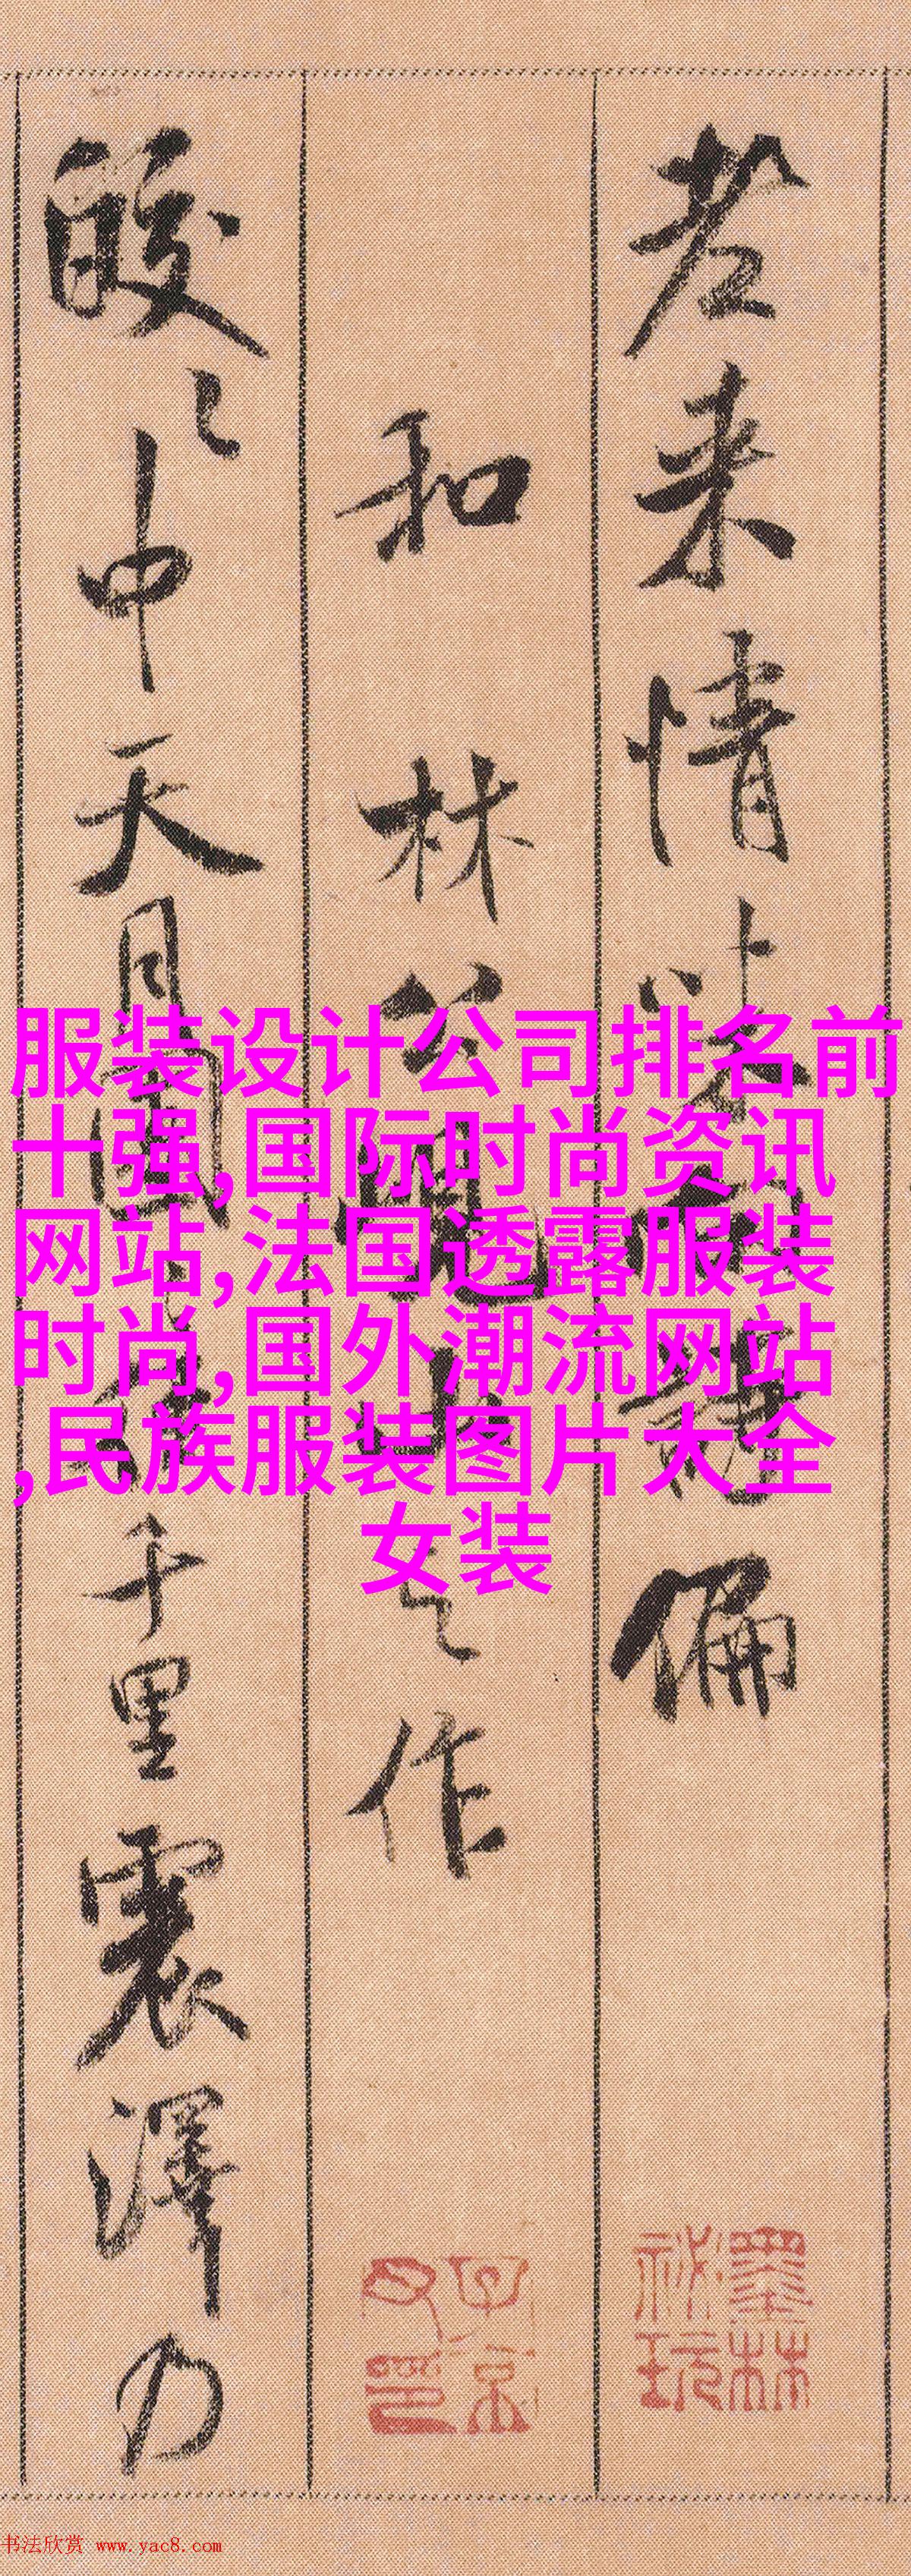 老来情
偏
和林公
作
皎〻中天月团
千里震泽
服装设计公司排名前
十强,国际时尚资讯
网站,法国透露服装
时尚,国外潮流网站
,民族服装图片大全
女装
墨林
秘玩
子京
书法欣赏 www.yac8.com